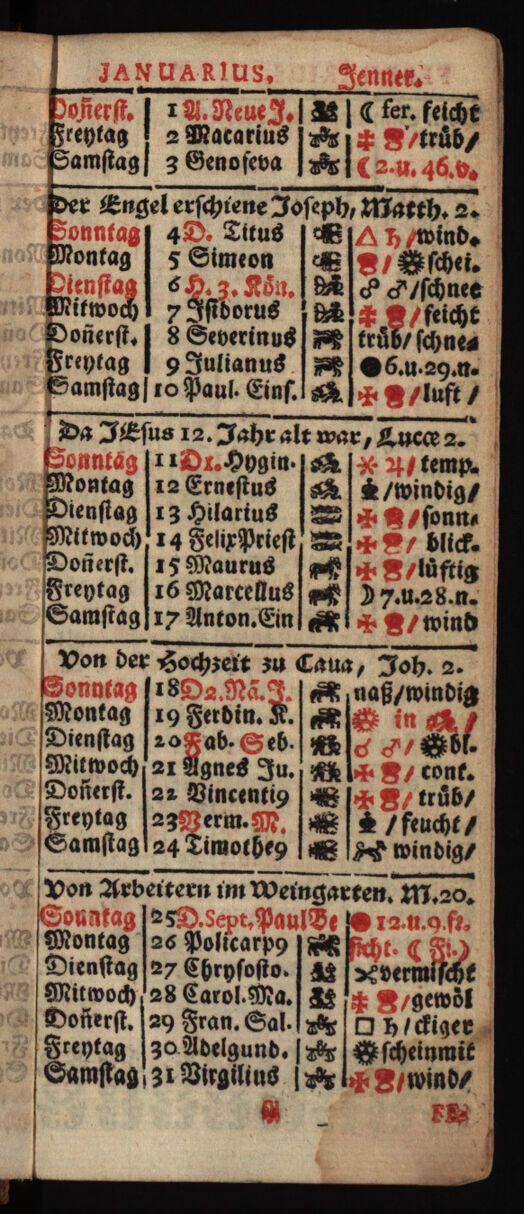 JANUARIUS. Jenner.
Doñerst. 1 A. Neue J. ☾ fer. feicht
Freytag 2 Macarius /trüb/
Samstag 3 Genofeva ☾ 2.u. 46.v.
Der Engel erschiene Joseph, Matth. 2.
Sonntag 4 D. Titus △ ♄/wind.
Montag 5 Simeon / schei.
Dienstag 6 H. 3. Kön. ☍ ♂/schnee
Mitwoch 7 Isidorus / feicht
Doñerst. 8 Severinus trüb/ schnea
Freytag 9 Julianus ●6.u.29.n.
Samstag 10 Paul. Eins. /luft /
Da JEsus 12. Jahr alt war, Lucæ 2.
Sonntag 11 D1. Hygin. ⚹ ♃/ temp.
Montag 12 Ernestus /windig/
Dienstag 13 Hilarius /sonn/
Mitwoch 14 Felix Priest / blick.
Doñerst. 15 Maurus /lüftig
Freytag 16 Marcellus ☽ 7.u.28.n.
Samstag 17 Anton. Ein / wind
Von der Hochzeit zu Cana, Joh. 2.
Sonntag 18 D2. Nã. J. naß/windig
Montag 19 Ferdin. K. in /
Dienstag 20 Fab. Seb. ☌ ♂/ bl.
Mitwoch 21 Agnes Ju. / cont.
Doñerst. 22 Vincenti9 / trüb/
Freytag 23 Verm. M. / feucht /
Samstag 24 Timothe9 windig/
Von Arbeitern im Weingarten. M. 20.
Sonntag 25 D. Sept. Paul Be ●12.u.9.
Montag 26 Policarp9 sicht. ☾ Fi.)
Dienstag 27 Chrysosto. vermischt
Mitwoch 28 Carol. Ma. /gewöl
Doñerst. 29 Fran. Sal. □ ♄/ ckiger
Freytag 30 Adelgund. scheinmit
Samstag 31 Virgilius /wind/